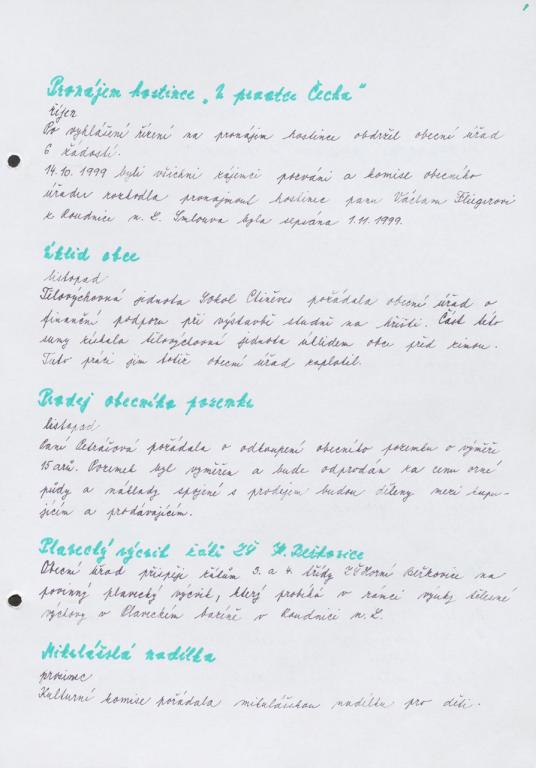 Pronájem hostince „U praotce Čecha"
říjen
Po vyhlášení řízení na pronájem hostince obdržel obecní úřad
6 žádostí.
14.10. 1999 byli všichni zájemci pozváni a komise obecního
úřadu rozhodla pronajmout hostinec panu Václavu Fliegerovi
z Roudnice n. L. Smlouva byla sepsána 1.11. 1999.
Úklid obce
listopad
Tělovýchovná jednota Sokol Ctiněves požádala obecní úřad o
finanční podporu při výstavbě studní na hřišti. Část této
sumy získala tělovýchovná jednota úklidem obce před zimou.
Tuto práci jim totiž obecní úřad zaplatil.
Prodej obecního pozemku
listopad
Paní Petrášová požádala o odkoupení obecního pozemku o výměře
15 arů. Pozemek byl vyměřen a bude odprodán za cenu orné
půdy a náklady spojené s prodejem budou děleny mezi kupu-
jícím a prodávajícím.
Plavecký výcvik žáků ZŠ H. Beřkovice
Obecní úřad přispěje žákům 3. a 4. třídy ZŠ Horní Beřkovice na
povinný plavecký výcvik, který probíhá v rámci výuky tělesné
výchovy v Plaveckém bazéně v Roudnici n. L.
Mikulášská nadílka
prosinec
Kulturní komise pořádala mikulášskou nadílku pro děti.